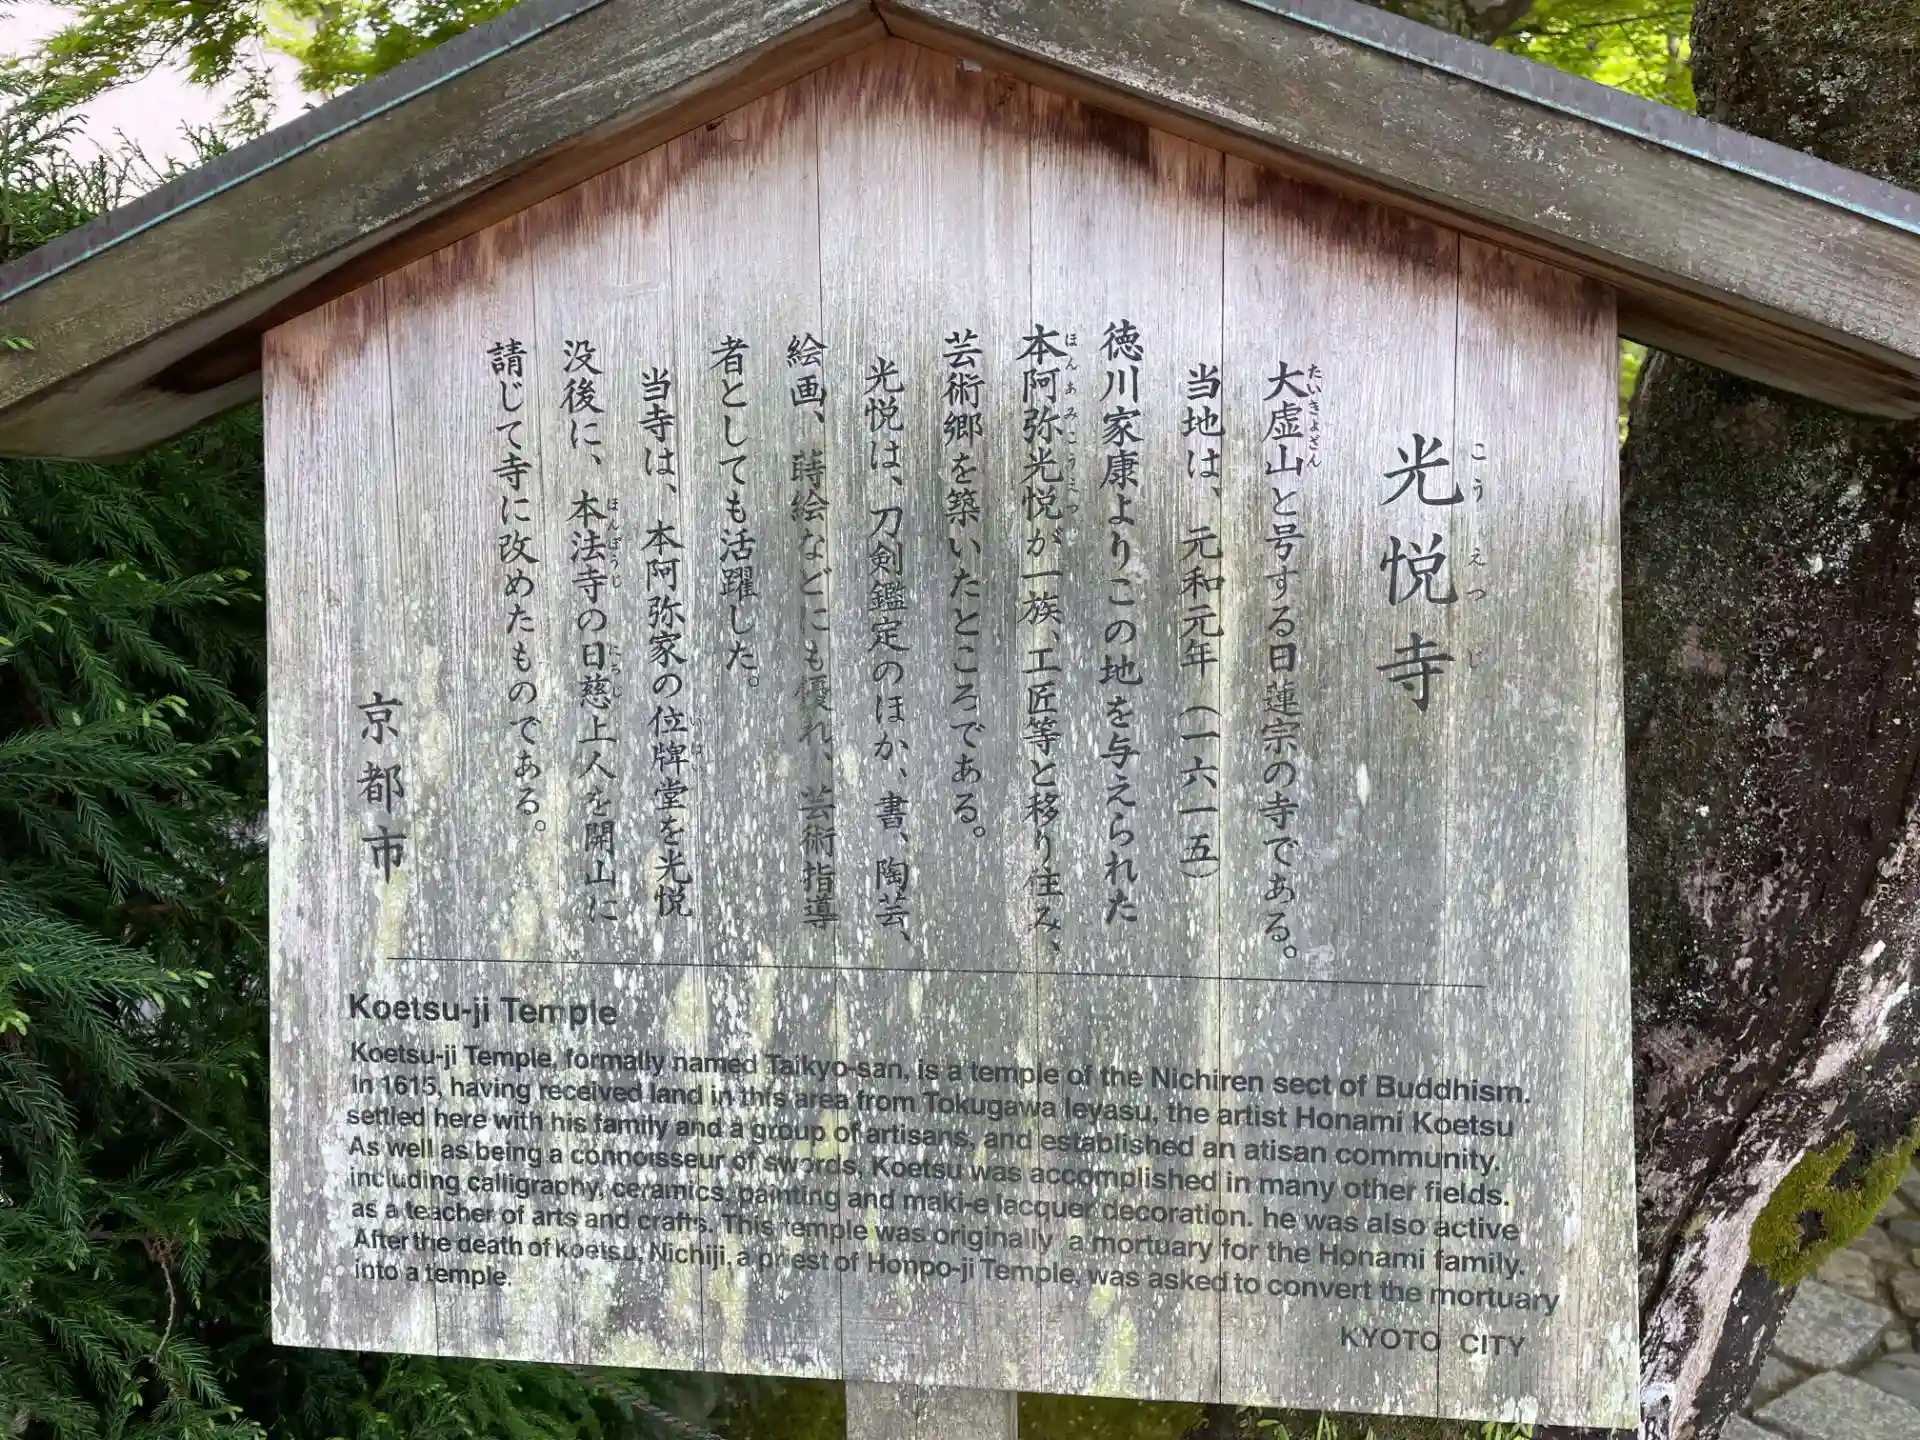 光悦寺
こうえつじ
大虚山と号する日蓮宗の寺である。
たいきよざん
当地は、元和元年（一六一五）
徳川家康よりこの地を与えられた
本阿弥光悦が一族、工匠等と移り住み、
ほんあみこうえつ
芸術郷を築いたところである。
光悦は、刀剣鑑定のほか、書、陶芸、
絵画、蒔絵などにも優れ、芸術指導
者としても活躍した。
当寺は、本阿弥家の位牌堂を光悦
いはい
没後に、本法寺の日慈上人を開山に
ほんぽうじ
にちじ
請じて寺に改めたものである。
京都市
Koetsu-ji Temple
Koetsu-ji Temple, formally named Taikyo-san, is a temple of the Nichiren sect of Buddhism.
In 1615, having received land in this area from Tokugawa Ieyasu, the artist Honami Koetsu
settled here with his family and a group of artisans, and established an atisan community.
As well as being a connoisseur of swords, Koetsu was accomplished in many other fields.
including calligraphy, ceramics, painting and maki-e lacquer decoration. he was also active
as a teacher of arts and crafts. This temple was originally a mortuary for the Honami family.
After the death of koetsu, Nichiji, a priest of Honpo-ji Temple, was asked to convert the mortuary
into a temple.
KYOTO CITY